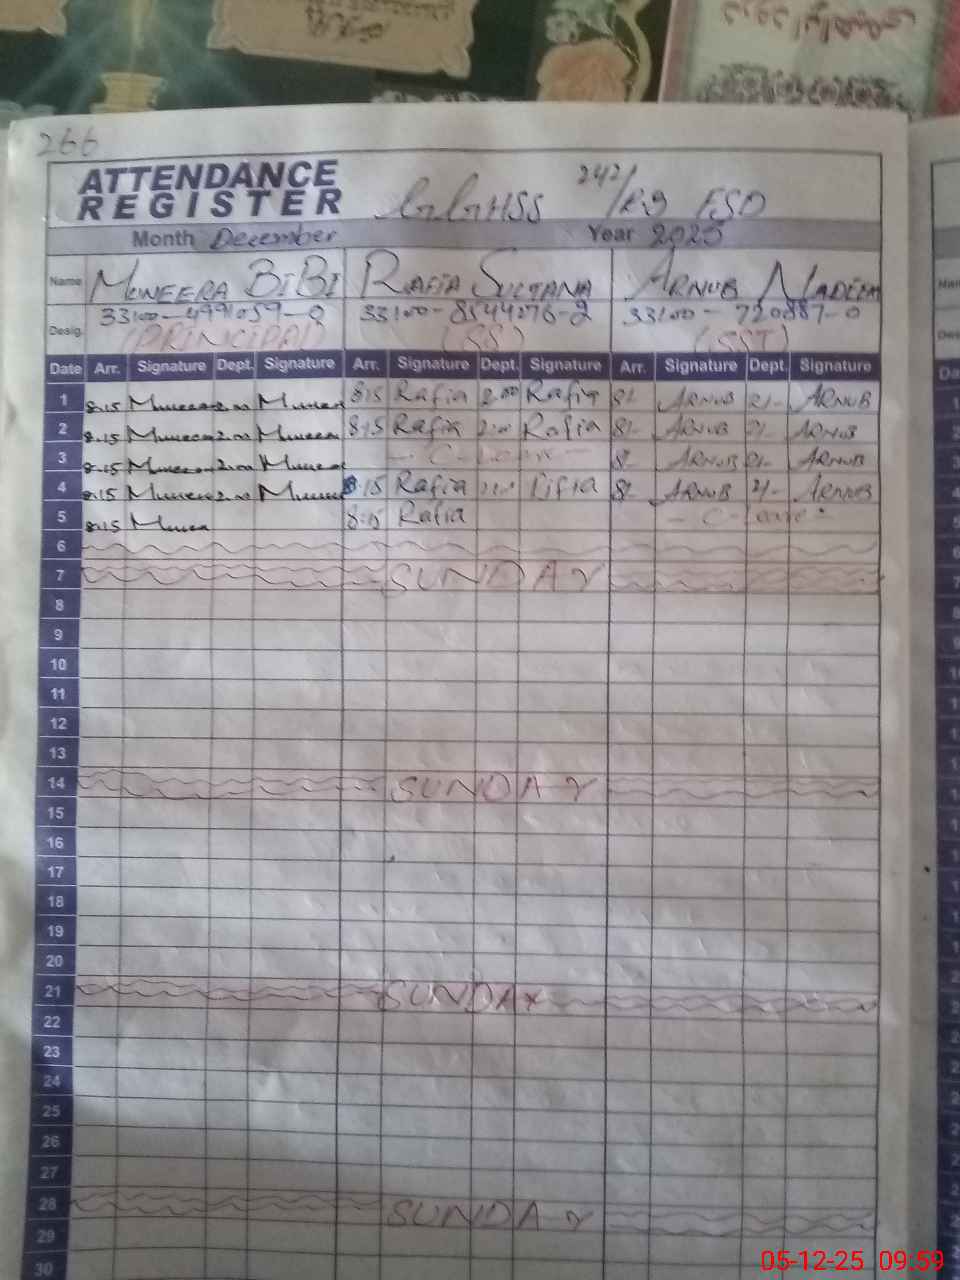 266
ATTENDANCE
REGISTER GGHSS 242/RB FSD
Month December Year 2025
Name MUNEERA BIBI RAFIA SULTANA ARNUB NADEEM
Desig. 33100-4991059-0 33100-8544076-2 33100-720887-0
(PRINCIPAL) (SS) (SST)
Date Arr. Signature Dept. Signature Arr. Signature Dept. Signature Arr. Signature Dept. Signature
1 8:15 2:00 8:15 Rafia 2:00 Rafia 8/- ARNUB 2/- ARNUB
2 8:15 2:00 8:15 Rafia 2:00 Rafia 8/- ARNUB 2/- ARNUB
3 8:15 2:00 - C-Leave - 8/- ARNUB 2/- ARNUB
4 8:15 2:00 8:15 Rafia 8/- ARNUB 2/- ARNUB
5 8:15 8:15 Rafia - C-Leave -
6
7 SUNDAY
8
9
10
11
12
13
14 SUNDAY
15
16
17
18
19
20
21 SUNDAY
22
23
24
25
26
27
28 SUNDAY
29
30
05-12-25 09:59